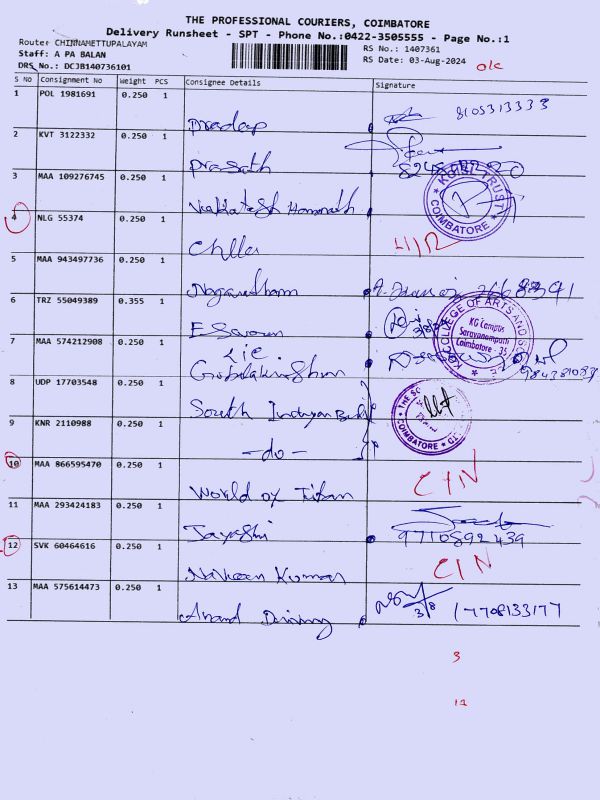 THE PROFESSIONAL COURIERS, COIMBATORE
Delivery Runsheet - SPT - Phone No.:0422-3505555 - Page No.:1
Route: CHINNAMETTUPALAYAM
Staff: A PA BALAN
DRS No.: DCJB140736101
RS No.: 1407361
RS Date: 03-Aug-2024
S No Consignment No Weight PCS Consignee Details Signature
1 POL 1981691 0.250 1 Pradeep 8105313333
2 KVT 3122332 0.250 1 Prasath
3 MAA 109276745 0.250 1 TRUST COIMBATORE
4 NLG 55374 0.250 1
5 MAA 943497736 0.250 1
6 TRZ 55049389 0.355 1 E
7 MAA 574212908 0.250 1 Lic
COLLEGE OF ARTS AND
KG Campus
Saravanampatti
Coimbatore - 35
8 UDP 17703548 0.250 1 South
COIMBATORE
9 KNR 2110988 0.250 1 -do-
10 MAA 866595470 0.250 1 World of Titan C/N
11 MAA 293424183 0.250 1 Jayashri 9710892439
12 SVK 60464616 0.250 1 Naveen Kumar C/N
13 MAA 575614473 0.250 1 Anand 3/8 7708133177
3
12